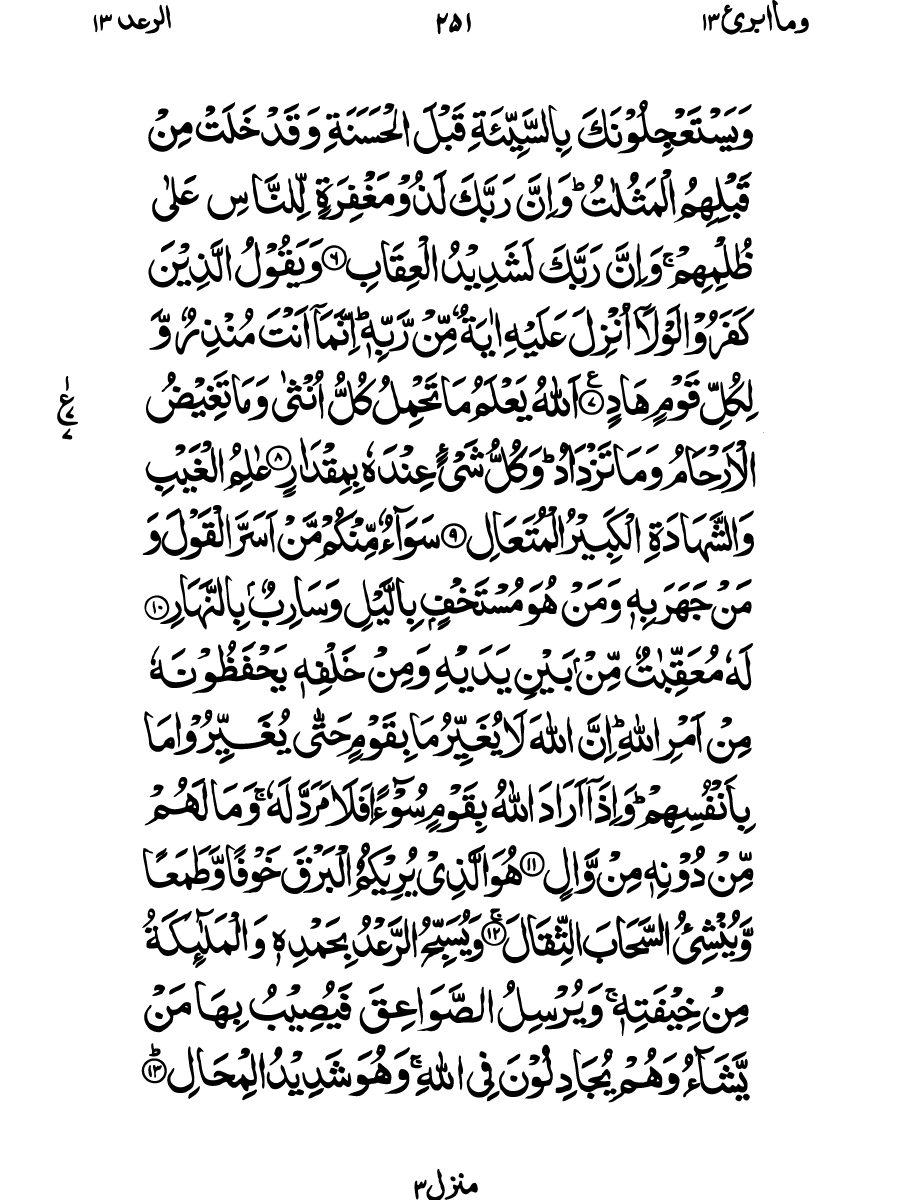 وماابرئ ١٣
٢٥١
الرعد ١٣
وَيَسْتَعْجِلُوْنَكَ بِالسَّيِّئَةِ قَبْلَ الْحَسَنَةِ وَ قَدْ خَلَتْ مِنْ
قَبْلِهِمُ الْمَثُلٰتُ ؕ وَاِنَّ رَبَّكَ لَذُوْ مَغْفِرَةٍ لِّلنَّاسِ عَلٰى
ظُلْمِهِمْ ۚ وَاِنَّ رَبَّكَ لَشَدِيْدُ الْعِقَابِ ﴿۶﴾ وَيَقُوْلُ الَّذِيْنَ
كَفَرُوْا لَوْلَاۤ اُنْزِلَ عَلَيْهِ اٰيَةٌ مِّنْ رَّبِّهٖ ؕ اِنَّمَاۤ اَنْتَ مُنْذِرٌ وَّ
لِكُلِّ قَوْمٍ هَادٍ ﴿۷﴾ اَللّٰهُ يَعْلَمُ مَا تَحْمِلُ كُلُّ اُنْثٰى وَمَا تَغِيْضُ
ع
٧
٧
الْاَرْحَامُ وَمَا تَزْدَادُ ؕ وَكُلُّ شَىْءٍ عِنْدَهٗ بِمِقْدَارٍ ﴿۸﴾ عٰلِمُ الْغَيْبِ
وَالشَّهَادَةِ الْكَبِيْرُ الْمُتَعَالِ ﴿۹﴾ سَوَآءٌ مِّنْكُمْ مَّنْ اَسَرَّ الْقَوْلَ وَ
مَنْ جَهَرَ بِهٖ وَمَنْ هُوَ مُسْتَخْفٍۭ بِالَّيْلِ وَسَارِبٌۢ بِالنَّهَارِ ﴿۱۰﴾
لَهٗ مُعَقِّبٰتٌ مِّنْۢ بَيْنِ يَدَيْهِ وَمِنْ خَلْفِهٖ يَحْفَظُوْنَهٗ
مِنْ اَمْرِ اللّٰهِ ؕ اِنَّ اللّٰهَ لَا يُغَيِّرُ مَا بِقَوْمٍ حَتّٰى يُغَيِّرُوْا مَا
بِاَنْفُسِهِمْ ؕ وَاِذَاۤ اَرَادَ اللّٰهُ بِقَوْمٍ سُوْٓءًا فَلَا مَرَدَّ لَهٗ ۚ وَمَا لَهُمْ
مِّنْ دُوْنِهٖ مِنْ وَّالٍ ﴿۱۱﴾ هُوَ الَّذِىْ يُرِيْكُمُ الْبَرْقَ خَوْفًا وَّطَمَعًا
وَّيُنْشِئُ السَّحَابَ الثِّقَالَ ﴿۱۲﴾ ۚ وَيُسَبِّحُ الرَّعْدُ بِحَمْدِهٖ وَالْمَلٰٓئِكَةُ
مِنْ خِيْفَتِهٖ ۚ وَيُرْسِلُ الصَّوَاعِقَ فَيُصِيْبُ بِهَا مَنْ
يَّشَآءُ وَهُمْ يُجَادِلُوْنَ فِى اللّٰهِ ۚ وَهُوَ شَدِيْدُ الْمِحَالِ ﴿۱۳﴾ ؕ
منزل ٣